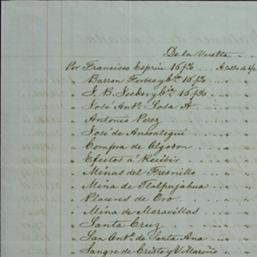 De la Vuelta
Por Francisco Espriu 15 p%
" Barron Forbes y Cia 15 p%
" J. B. Jecker y Cia 15 p%
" José Anto. Sosa A
" Antonio Perez
" José de Ansoategui
" Compra de Algodon
" Efectos á Recibir
" Minas del Fresnillo
" Mina de Tlalpujahua
" Placeres de Oro
" Mina de Maravillas
" Santa Cruz
" San Anto. de Santa Ana
" Sangre de Cristo y Villarino